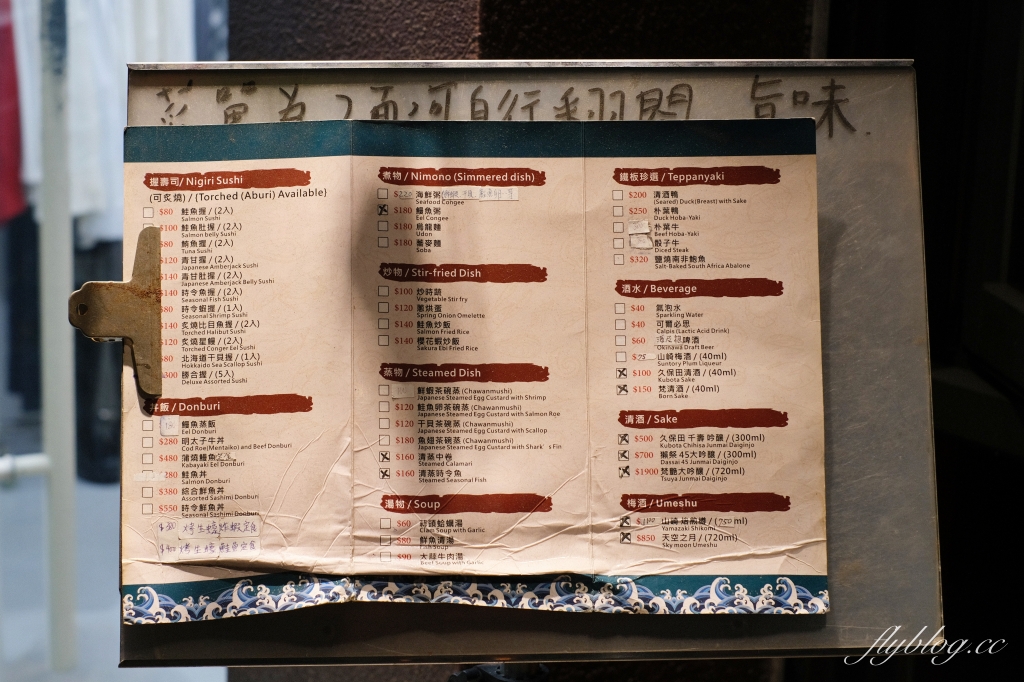 菜單為2面,可自行翻閱 旨味.
握壽司/Nigiri Sushi
(可炙燒)/(Torched (Aburi) Available)
$80 鮭魚握/(2入)
Salmon Sushi
$100 鮭魚肚握/(2入)
Salmon belly Sushi
$80 鮪魚握/(2入)
Tuna Sushi
$120 青甘握/(2入)
Japanese Amberjack Sushi
$140 青甘肚握/(2入)
Japanese Amberjack Belly Sushi
$140 時令魚握/(2入)
Seasonal Fish Sushi
$80 時令蝦握/(1入)
Seasonal Shrimp Sushi
$140 炙燒比目魚握/(2入)
Torched Halibut Sushi
$120 炙燒星鰻/(2入)
Torched Conger Eel Sushi
$80 北海道干貝握/(1入)
Hokkaido Sea Scallop Sushi
$300 勝合握/(5入)
Deluxe Assorted Sushi
丼飯/Donburi
鰻魚蒸飯
Eel Donburi
$280 明太子牛丼
Cod Roe(Mentaiko) and Beef Donburi
$480 蒲燒鰻魚
Kabayaki Eel Donburi
$280 鮭魚丼
Salmon Donburi
$380 綜合鮮魚丼
Assorted Sashimi Donburi
$550 時令鮮魚丼
Seasonal Sashimi Donburi
煮物/Nimono (Simmered dish)
海鮮粥
Seafood Congee
$180 鰻魚粥
Eel Congee
$180 烏龍麵
Udon
$180 蕎麥麵
Soba
炒物/Stir-fried Dish
$100 炒時蔬
Vegetable Stir fry
$120 蔥烘蛋
Spring Onion Omelette
$140 鮭魚炒飯
Salmon Fried Rice
$140 櫻花蝦炒飯
Sakura Ebi Fried Rice
蒸物/Steamed Dish
鮮蝦茶碗蒸 (Chawanmushi)
Japanese Steamed Egg Custard with Shrimp
$120 鮭魚卵茶碗蒸 (Chawanmushi)
Japanese Steamed Egg Custard with Salmon Roe
$120 干貝茶碗蒸 (Chawanmushi)
Japanese Steamed Egg Custard with Scallop
$180 魚翅茶碗蒸 (Chawanmushi)
Japanese Steamed Egg Custard with Shark's Fin
$160 清蒸中卷
Steamed Calamari
$160 清蒸時令魚
Steamed Seasonal Fish
湯物/Soup
$60 蒜頭蛤蠣湯
Clam Soup with Garlic
$80 鮮魚清湯
Fish Soup
$90 大蒜牛肉湯
Beef Soup with Garlic
鐵板珍選/Teppanyaki
$200 清酒鴨
(Seared) Duck(Breast) with Sake
$250 朴葉鴨
Duck Hoba-Yaki
朴葉牛
Beef Hoba-Yaki
骰子牛
Diced Steak
$320 鹽燒南非鮑魚
Salt-Baked South Africa Abalone
酒水/Beverage
$40 氣泡水
Sparkling Water
$40 可爾必思
Calpis (Lactic Acid Drink)
$60 啤酒
Okinawa Draft Beer
山崎梅酒/(40ml)
Suntory Plum Liqueur
$100 久保田清酒/(40ml)
Kubota Sake
$150 梵清酒/(40ml)
Born Sake
清酒/Sake
$500 久保田 千壽 吟釀/(300ml)
Kubota Chihisa Junmai Daiginjo
$700 獺祭 45大吟釀/(300ml)
Dassai 45 Junmai Daiginjo
$1900 梵艷大吟釀/(720ml)
Tsuya Junmai Daiginjo
梅酒/Umeshu
山崎 焙煎樽/(750ml)
Yamazaki Shikomi
$850 天空之月/(720ml)
Sky moon Umeshu
flyblog.cc